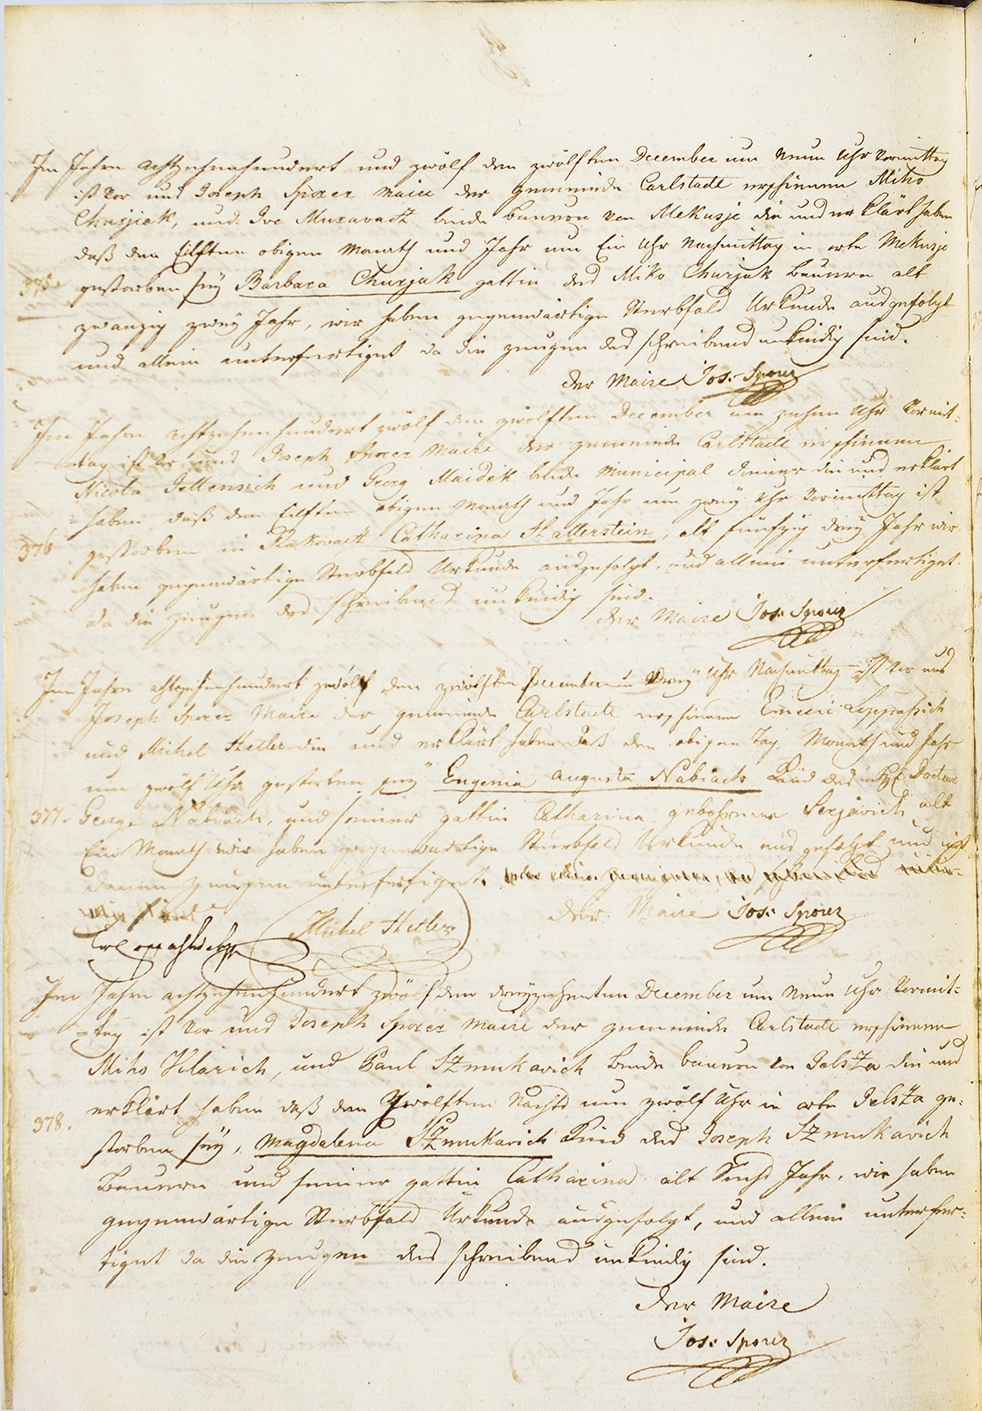 Im Jahre achtzehnhundert und zwölf den zwölften December um Neun Uhr Vormittag
ist vor uns Joseph Sporer Maire der gemeinde Carlstadt erschienen Miko
Churjak, und Ive Muravach beide bauern von Mekusje die uns erklärt haben
daß den Eilften obigen Monath und Jahr um Ein Uhr Nachmittag in orte Mekusje
375. gestorben sey Barbara Churjak gattin des Miko Churjak bauern alt
zwanzig zwey Jahr, wir haben gegenwärtige Sterbfals Urkunde ausgefolgt
und allein unterfertiget da die zeugen des schreibens unkündig sind.
der Maire Jos: Sporer
Im Jahre achtzehenhundert zwölf den zwölften December um zehen Uhr Vormit-
-tag ist vor uns Joseph Sporer Maire der gemeinde Carlstadt erschienen
Nicola und Georg Maidek beide Municipal diener die uns erklärt
haben, daß den Eilften obigen Monath und Jahr um zwey Uhr Vormittag ist
376 gestorben in Rakovatz Catharina Hallerstein, alt fünfzig drey Jahr wir
haben gegenwärtige Sterbfals Urkunde ausgefolgt, und allein unterfertiget
da die zeugen des schreibens unkündig sind.
der Maire Jos: Sporer
Im Jahre achtzehenhundert zwölf den zwölften December um drey Uhr Nachmittag ist vor uns
Joseph Sporer Maire der gemeinde Carlstadt erschienen Emeric
und Michel Hetler die uns erklärt haben daß den obigen Tag Monath und Jahr
um zwölf Uhr gestorben sey Eugenia Augusta Nabiach Kind des Doctors
377. George Nabiach, und seiner gattin Catharina gebohrene alt
Ein Monath wir haben gegenwärtige Sterbfals Urkunde ausgefolgt und mit
denen zeugen unterfertiget.
der Maire Jos: Sporer
Michel Hetler
Im Jahre achtzehenhundert zwölf den dreyzehenten December um Neun Uhr Vormit-
-tag ist vor uns Joseph Sporer Maire der gemeinde Carlstadt erschienen
Miko Klarich, und Paul Szmukavich beide bauern von Jelsza die uns
erklärt haben daß den Zwölften Nachts um zwölf Uhr in orte Jelsza ge-
378. storben sey, Magdalena Szmukavich Kind des Joseph Szmukavich
Bauern und seiner gattin Catharina alt Sechs Jahr, wir haben
gegenwärtige Sterbfals Urkunde ausgefolgt, und allein unterfer-
tiget da die zeugen des schreibens unkündig sind.
der Maire
Jos: Sporer